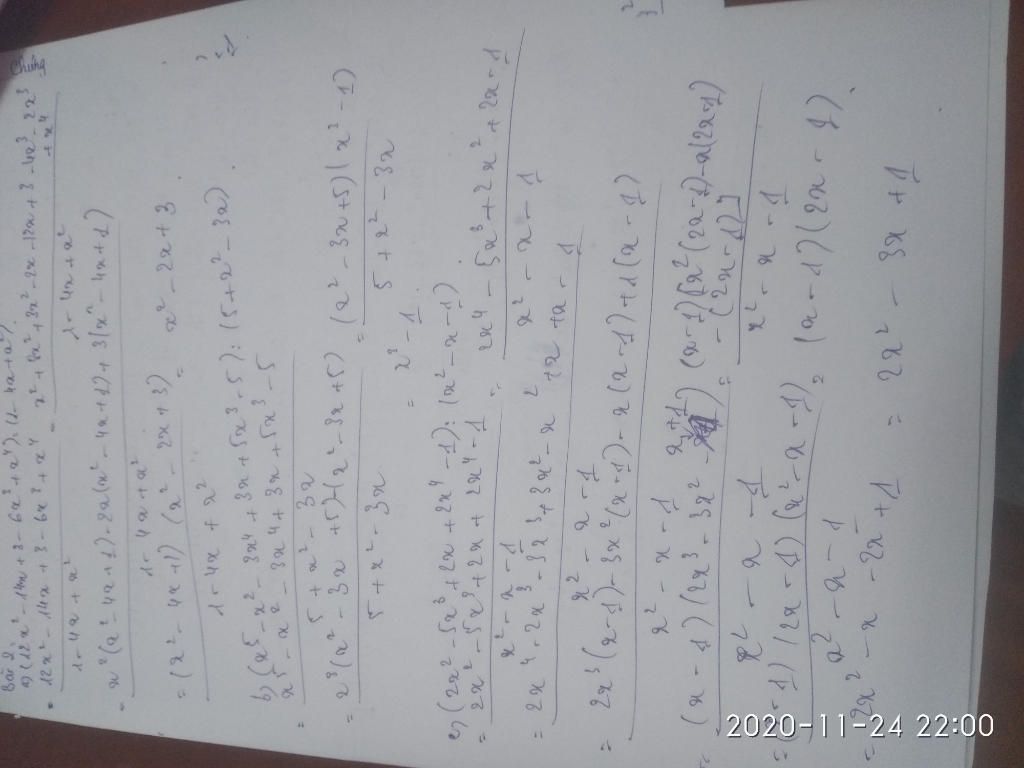 Bài 2
a) (12x² - 14x + 3 - 6x³ + x⁴) : (1 - 4x + x²)
= 12x² - 14x + 3 - 6x³ + x⁴ / 1 - 4x + x² = x² + 8x² + 3x² - 2x - 12x + 3 - 4x³ - 2x³ + x⁴ / 1 - 4x + x²
= x²(x² - 4x + 1) - 2x(x² - 4x + 1) + 3(x² - 4x + 1) / 1 - 4x + x²
= (x² - 4x + 1) (x² - 2x + 3) / 1 - 4x + x² = x² - 2x + 3
b) (x⁵ - x² - 3x⁴ + 3x + 5x³ - 5) : (5 + x² - 3x)
= x⁵ - x² - 3x⁴ + 3x + 5x³ - 5 / 5 + x² - 3x
= x³(x² - 3x + 5) - (x² - 3x + 5) / 5 + x² - 3x = (x² - 3x + 5) (x³ - 1) / 5 + x² - 3x
= x³ - 1
c) (2x² - 5x³ + 2x + 2x⁴ - 1) : (x² - x - 1)
= 2x² - 5x³ + 2x + 2x⁴ - 1 / x² - x - 1 = 2x⁴ - 5x³ + 2x² + 2x - 1 / x² - x - 1
= 2x⁴ - 2x³ - 3x³ + 3x² - x² + x + x - 1 / x² - x - 1
= 2x³(x - 1) - 3x²(x - 1) - x(x - 1) + 1(x - 1) / x² - x - 1
= (x - 1) (2x³ - 3x² - x + 1) / x² - x - 1 = (x - 1)[x²(2x - 1) - x(2x - 1) - (2x - 1)] / x² - x - 1
= (x - 1) (2x - 1) (x² - x - 1) / x² - x - 1 = (x - 1) (2x - 1)
= 2x² - x - 2x + 1 = 2x² - 3x + 1
2020-11-24 22:00